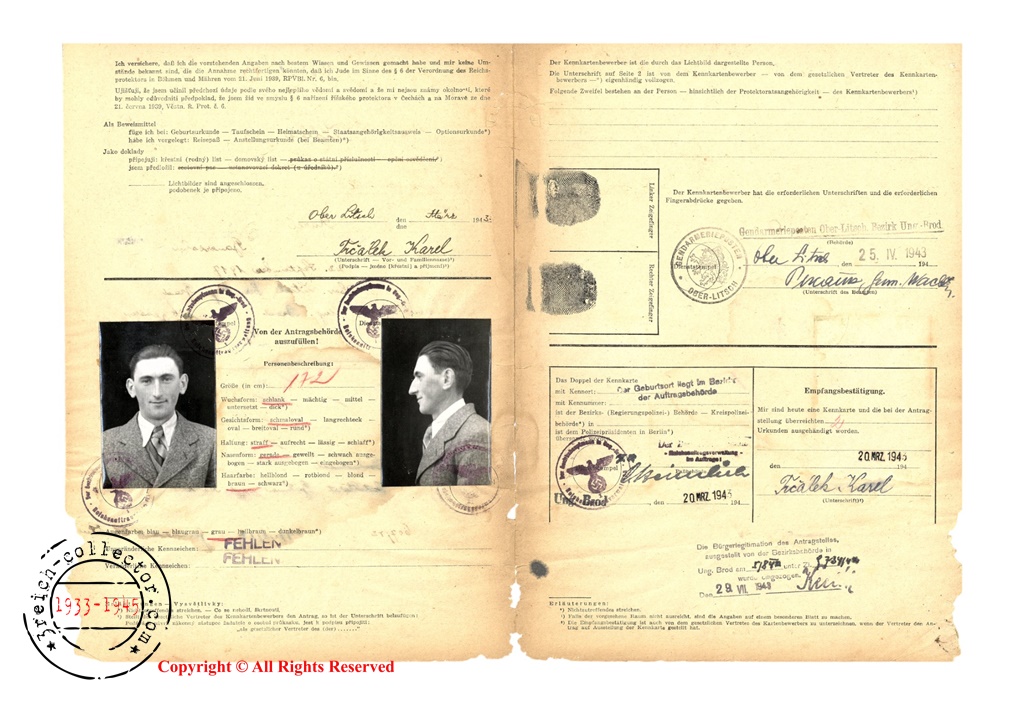 Ich versichere, daß ich die vorstehenden Angaben nach bestem Wissen und Gewissen gemacht habe und mir keine Um-
stände bekannt sind, die die Annahme rechtfertigen könnten, daß ich Jude im Sinne des § 6 der Verordnung des Reichs-
protektors in Böhmen und Mähren vom 21. Juni 1939, RPVBl. Nr. 6, bin.
Ujišťuji, že jsem učinil předchozí údaje podle svého nejlepšího vědomí a svědomí a že mi nejsou známy okolnosti, které
by mohly odůvodniti předpoklad, že jsem žid ve smyslu § 6 nařízení říšského protektora v Čechách a na Moravě ze dne
21. června 1939, Věstn. ř. Prot. č. 6.
Als Beweismittel
füge ich bei: Geburtsurkunde — Taufschein — Heimatschein — Staatsangehörigkeitsausweis — Optionsurkunde*)
habe ich vorgelegt: Reisepaß — Anstellungsurkunde (bei Beamten)*)
Jako doklady
připojuji: křestní (rodný) list — domovský list — průkaz o státní příslušnosti — opční osvědčení*)
jsem předložil: cestovní pas — ustanovovací dekret (u úředníků)*)
Lichtbilder sind angeschlossen.
podobenek je připojeno.
Ober Litsch den März 1943
dne
Trčálek Karel
(Unterschrift — Vor- und Familienname)²)
(Podpis — jméno [křestní] a příjmení)²)
Von der Antragsbehörde
auszufüllen!
Personenbeschreibung:
Größe (in cm): 172
Wuchsform: schlank — mächtig — mittel —
untersetzt — dick*)
Gesichtsform: schmaloval — langrechteck —
oval — breitoval — rund*)
Haltung: straff — aufrecht — lässig — schlaff*)
Nasenform: gerade — gewellt — schwach ausge-
bogen — stark ausgebogen — eingebogen*)
Haarfarbe: hellblond — rotblond — blond —
braun — schwarz*)
Augenfarbe: blau — blaugrau — grau — hellbraun — dunkelbraun*)
Unveränderliche Kennzeichen: FEHLEN
Veränderliche Kennzeichen: FEHLEN
Vysvětlivky:
3reich-collector.com
1933-1945
Copyright © All Rights Reserved
Der Kennkartenbewerber ist die durch das Lichtbild dargestellte Person.
Die Unterschrift auf Seite 2 ist von dem Kennkartenbewerber — von dem gesetzlichen Vertreter des Kennkarten-
bewerbers —*) eigenhändig vollzogen.
Folgende Zweifel bestehen an der Person — hinsichtlich der Protektoratsangehörigkeit — des Kennkartenbewerbers¹)
Linker Zeigefinger
Rechter Zeigefinger
Der Kennkartenbewerber hat die erforderlichen Unterschriften und die erforderlichen
Fingerabdrücke gegeben.
Gendarmerieposten Ober-Litsch, Bezirk Ung.-Brod.
(Behörde)
GENDARMERIEPOSTEN OBER-LITSCH
Dienststempel
Ober Litsch, den 25. IV. 1943
(Unterschrift des Beamten)
Das Doppel der Kennkarte
mit Kennort:
Der Geburtsort liegt im Bezirk
der Auftragsbehörde
mit Kennummer:
ist der Bezirks- (Regierungspolizei-) Behörde — Kreispolizei-
behörde*) in
ist dem Polizeipräsidenten in Berlin*)
übersandt
Im Auftrage:
Ung. Brod, den 20. MRZ. 1943
Empfangsbestätigung.
Mir sind heute eine Kennkarte und die bei der Antrag-
stellung überreichten
Urkunden ausgehändigt worden.
den 20. MRZ. 1943
Trčálek Karel
(Unterschrift³)
Die Bürgerlegitimation des Antragstellers,
ausgestellt von der Bezirksbehörde in
Ung. Brod am unter Zl.
wurde eingezogen.
Den 29. VII. 1943
Erläuterungen:
*) Nichtzutreffendes streichen.
¹) Falls der vorgesehene Raum nicht ausreicht, sind die Angaben auf einem besonderen Blatt zu machen.
³) Die Empfangsbestätigung ist auch von dem gesetzlichen Vertreter des Kartenbewerbers zu unterzeichnen, wenn der Vertreter den An-
trag auf Ausstellung der Kennkarte gestellt hat.